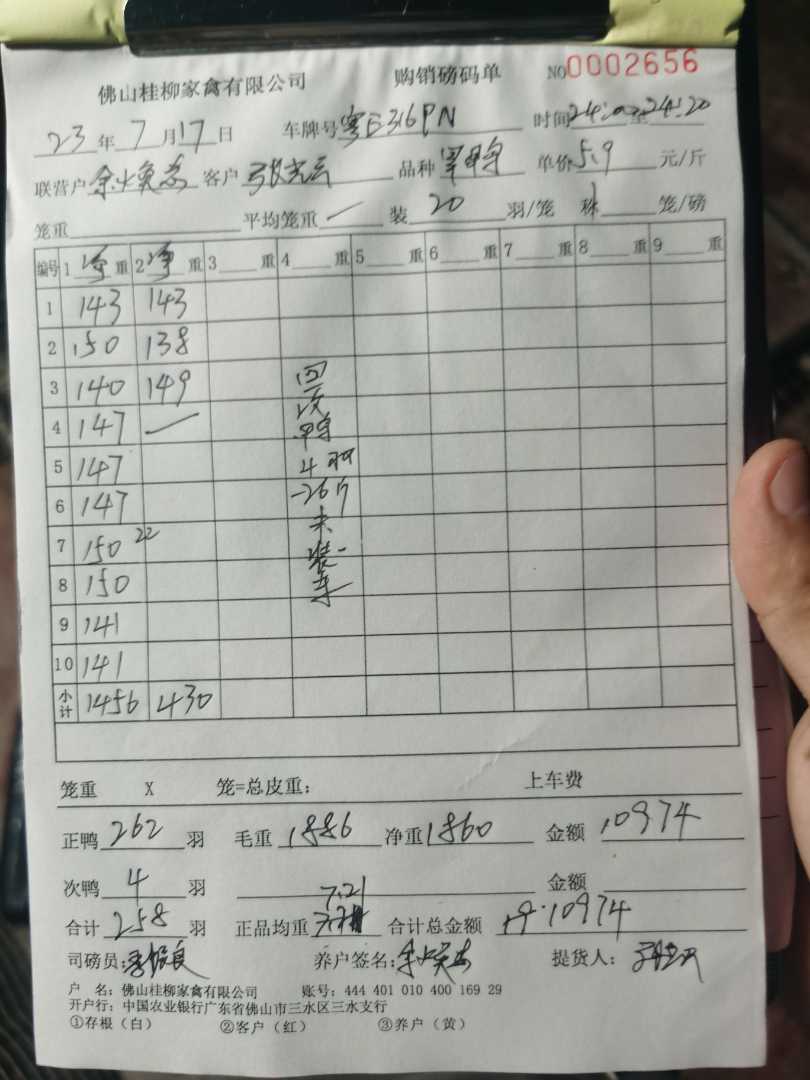 佛山桂柳家禽有限公司 购销磅码单 NO0002656
23年7月17日 车牌号粤E316PN 时间24:00至24:20
联营户 客户 品种 单价5.9元/斤
笼重 平均笼重一 装20羽/笼 称1笼/磅
编号 1净重 2净重 3重 4重 5重 6重 7重 8重 9重
1 143 143
2 150 138
3 140 149 回
4 147 一 次
5 147 鸭 4羽
6 147 -26斤
7 150 22 未
8 150 装车
9 141
10 141
小计 1456 430
笼重 X 笼=总皮重: 上车费
正鸭262羽 毛重1886 净重1860 金额10974
次鸭4羽 7.21 金额
合计258羽 正品均重 合计总金额10974
司磅员: 养户签名: 提货人:
户 名:佛山桂柳家禽有限公司 账号:444 401 010 400 169 29
开户行:中国农业银行广东省佛山市三水区三水支行
①存根(白) ②客户(红) ③养户(黄)